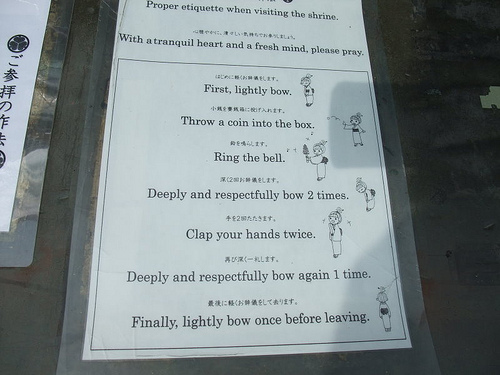 Proper etiquette when visiting the shrine.
心穏やかに、清々しい気持ちでお参りしましょう。
With a tranquil heart and a fresh mind, please pray.
はじめに軽くお辞儀をします。
First, lightly bow.
小銭を賽銭箱に投げ入れます。
Throw a coin into the box.
鈴を鳴らします。
Ring the bell.
深く2回お辞儀をします。
Deeply and respectfully bow 2 times.
手を2回たたきます。
Clap your hands twice.
再び深く一礼します。
Deeply and respectfully bow again 1 time.
最後に軽くお辞儀をして去ります。
Finally, lightly bow once before leaving.
ご参拝の作法